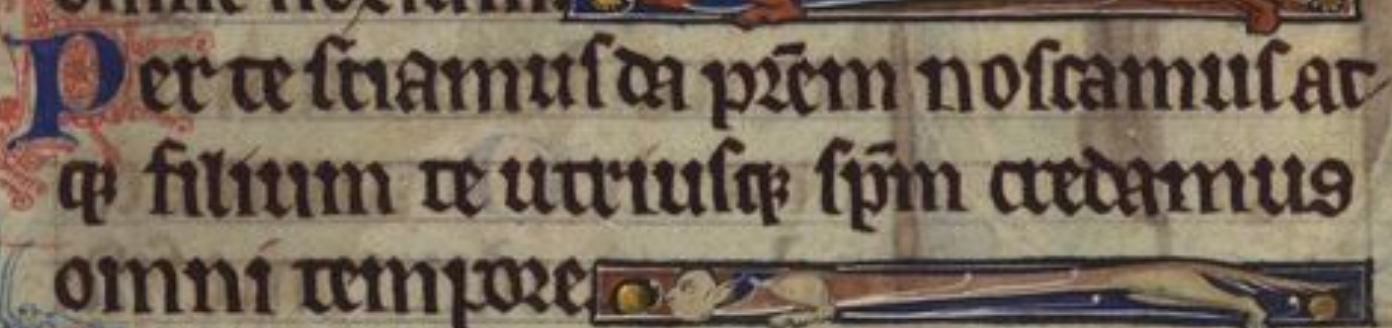 omne noxium.
Per te sciamus da pr̄em noscamus at
qꝫ filium te utriusqꝫ sp̄m credamus
omni tempore.